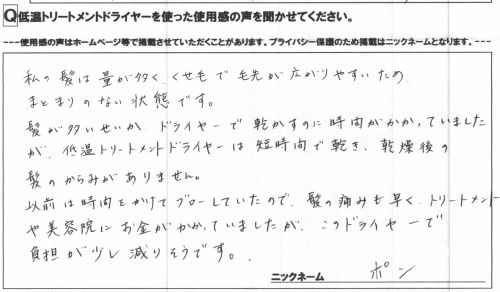 Q低温トリートメントドライヤーを使った使用感の声を聞かせてください。
---使用感の声はホームページ等で掲載させていただくことがあります。プライバシー保護のため掲載はニックネームとなります。---
私の髪は量が多く、くせ毛で毛先が広がりやすいため
まとまりのない状態です。
髪が多いせいか、ドライヤーで乾かすのに時間がかかっていました
が、低温トリートメントドライヤーは短時間で乾き、乾燥後の
髪のからみがありません。
以前は時間をかけてブローしていたので、髪の痛みも早く、トリートメント
や美容院にお金がかかっていましたが、このドライヤーで
負担が少し減りそうです。
ニックネーム ポン